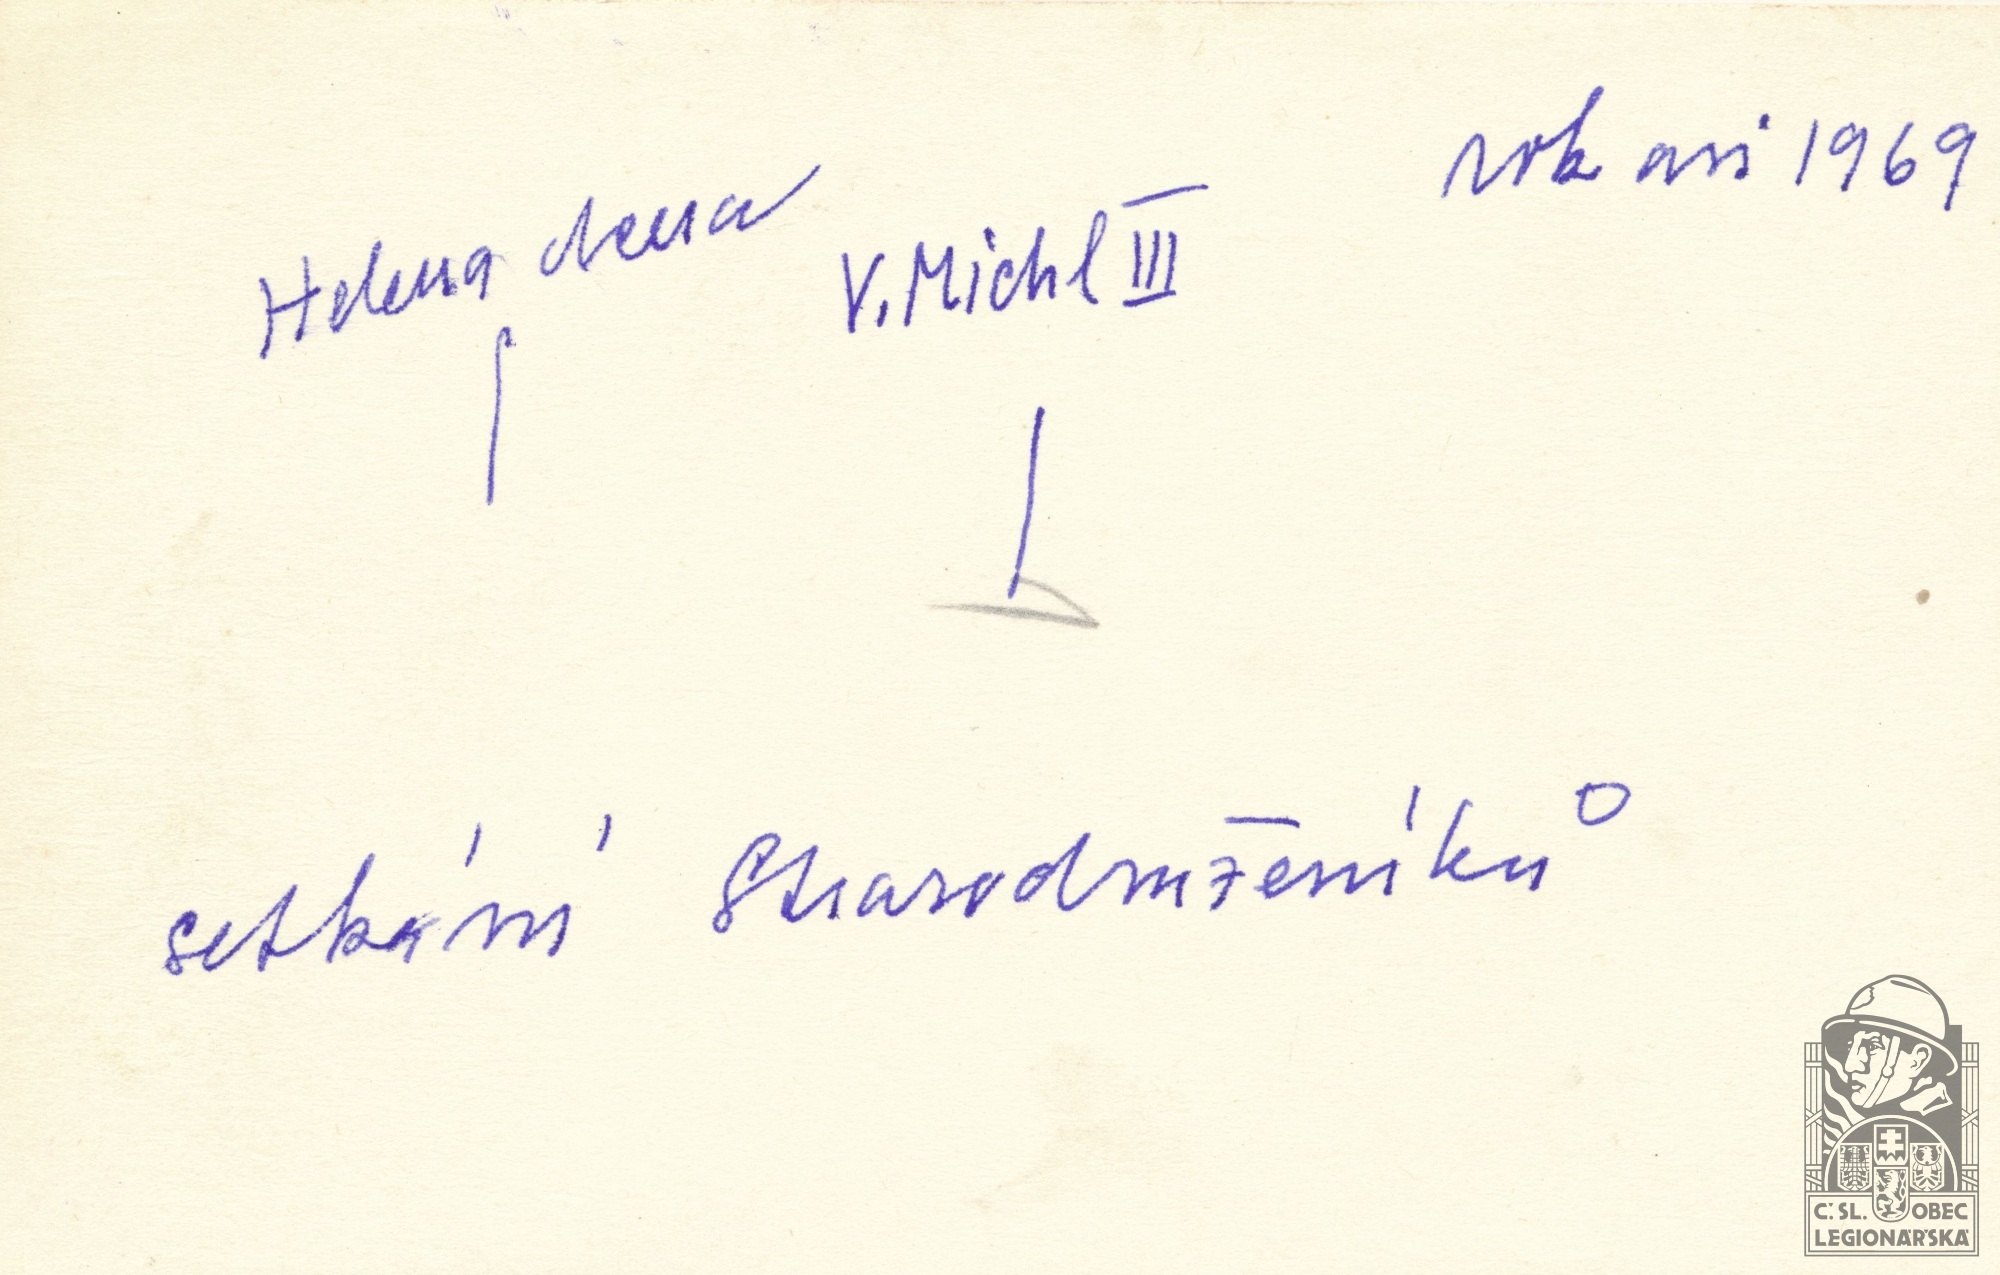 rok asi 1969
Helena dcera
V. Michl III
setkání Starodružiníků
Č.SL. OBEC
LEGIONÁŘSKÁ